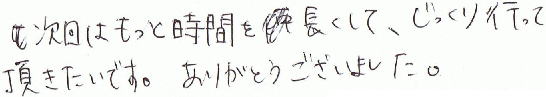 次回はもっと時間を長くして、じっくり行って
頂きたいです。ありがとうございました。